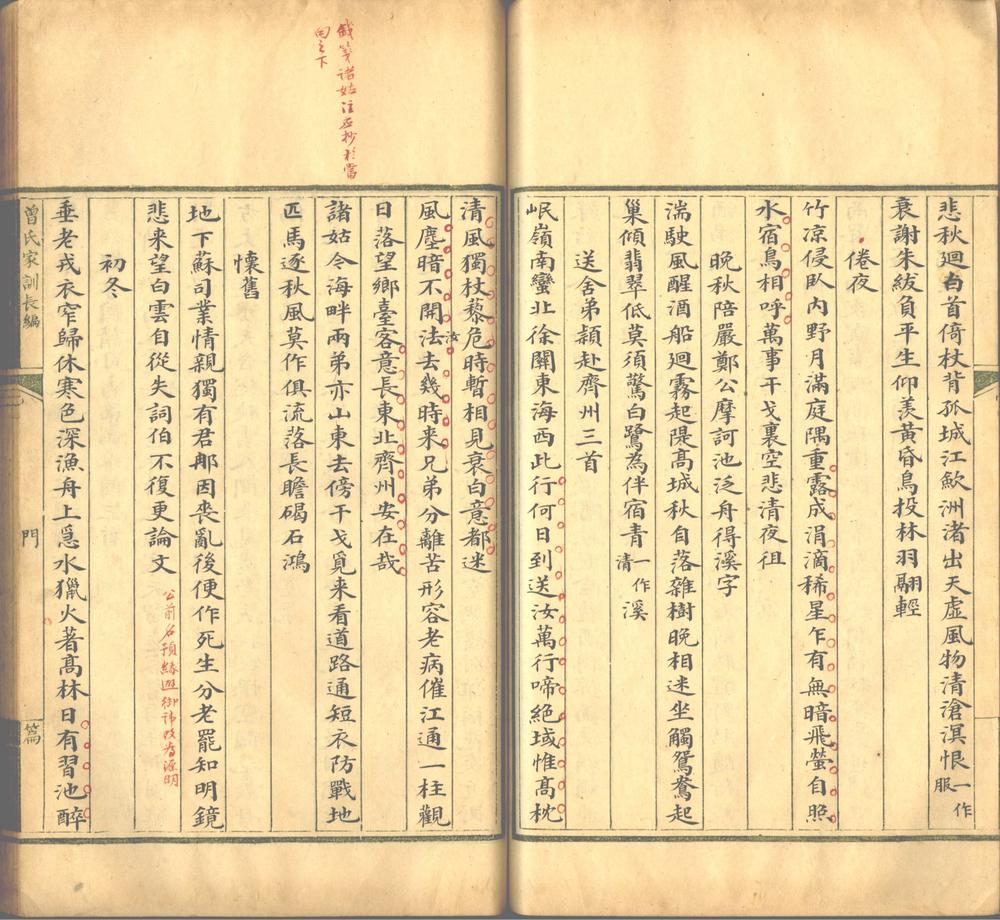 悲秋迴白首倚杖背孤城江歛洲渚出天虛風物清滄溟恨一作服
衰謝朱紱負平生仰羨黃昏鳥投林羽翮輕
倦夜
竹凉侵臥內野月滿庭隅重露成涓滴稀星乍有無暗飛螢自照
水宿鳥相呼萬事干戈裏空悲清夜徂
晚秋陪嚴鄭公摩訶池泛舟得溪字
湍駛風醒酒船迴霧起隄高城秋自落雜樹晚相迷坐觸鴛鴦起
巢傾翡翠低莫須驚白鷺為伴宿青一作清溪
送舍弟穎赴齊州三首
岷嶺南蠻北徐關東海西此行何日到送汝萬行啼絕域惟高枕
清風獨杖藜危時暫相見衰白意都迷
風塵暗不開法去幾時来兄弟分離苦形容老病催江通一柱觀
汝
日落望鄉臺客意長東北齊州安在哉
諸姑今海畔兩弟亦山東去傍干戈覓来看道路通短衣防戰地
匹馬逐秋風莫作俱流落長瞻碣石鴻
懷舊
地下蘇司業情親獨有君那因喪亂後便作死生分老罷知明鏡
悲来望白雲自從失詞伯不復更論文
公前名預緣避御諱改為源明
初冬
垂老戎衣窄歸休寒色深漁舟上急水獵火著高林日有習池醉
曾氏家訓長編
門
篇
錢箋諸姑注應抄於當
句之下